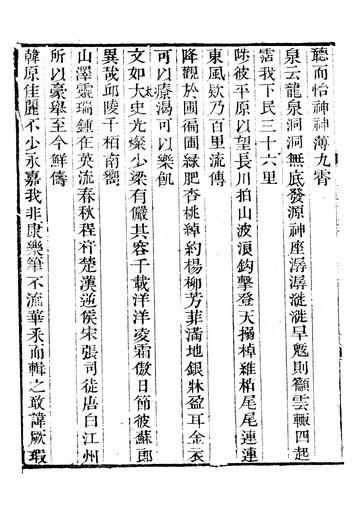 聽而怡神神薄九霄
泉云龍泉洞洞無底發源神座潺潺漇漇旱魃則籲雲輙四起
霑我下民三十六里
陟彼平原以望長川拍山波浪鈎擊登天搦棹維楫尾尾連連
東風欵乃百里流傳
降觀於圃徧圃緑肥杏桃綽約楊柳芳菲滿地銀牀盈耳金衣
可以療渴可以樂飢
文如太史光燦少梁有儼其容千載洋洋凌霜傲日節彼蘇郎
異哉邱陵千栢南嚮
山澤靈瑞鍾在英流春秋程杵楚漢逆侯宋張司徒唐白江州
所以豪舉至今鮮儔
韓原佳麗不少永嘉我非康樂筆不流華釆而輯之敢諱厥瑕